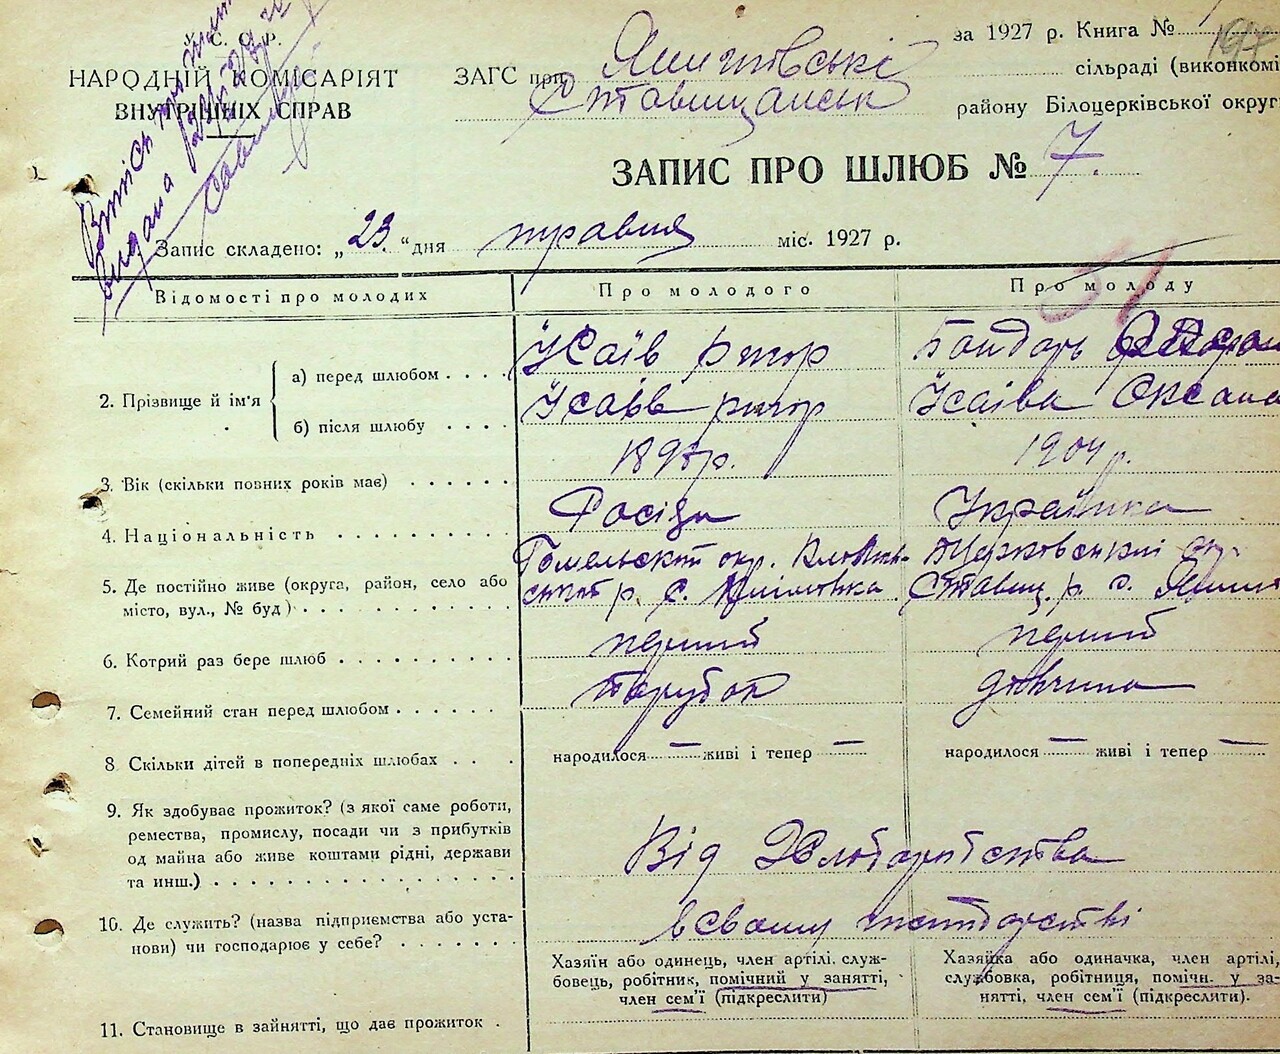 У. С. Р. Р.
НАРОДНІЙ КОМІСАРІЯТ
ВНУТРІШНІХ СПРАВ
за 1927 р. Книга №
ЗАГС при
сільраді (виконкомі
Ставищанськ району Білоцерківської округ
ЗАПИС ПРО ШЛЮБ № 7.
Запис складено: „23“ дня травня міс. 1927 р.
Відомості про молодих Про молодого Про молоду
2. Прізвище й ім'я
а) перед шлюбом Ісаїв Ригор Бондарь
б) після шлюбу Ісаїв Ригор Ісаїва Оксана
3. Вік (скільки повних років має) р. 1904 р.
4. Національність Росіян Українка
5. Де постійно живе (округа, район, село або Гомельскої окр.
місто, вул., № буд) р. с. Ставищ. р. с.
6. Котрий раз бере шлюб перший перший
7. Семейний стан перед шлюбом парубок дівчина
8 Скільки дітей в попередніх шлюбах народилося — живі і тепер — народилося — живі і тепер —
9. Як здобуває прожиток? (з якої саме роботи,
ремества, промислу, посади чи з прибутків
од майна або живе коштами рідні, держави
та инш.) Від Хліборобства
10. Де служить? (назва підприємства або уста-
нови) чи господарює у себе? в свому господарстві
Хазяїн або одинець, член артілі. служ-
бовець, робітник, помічний у занятті,
член сем'ї (підкреслити)
Хазяйка або одиначка, член артілі,
службовка, робітниця, помічн. у за-
нятті, член сем'ї (підкреслити).
11. Становище в зайнятті, що дає прожиток